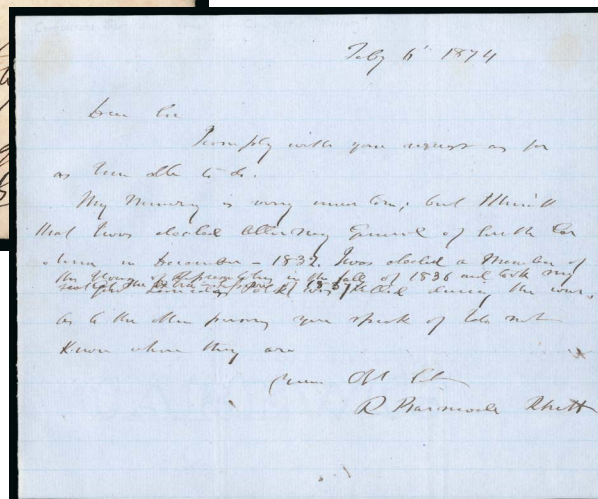 Feby 6' 1874
Dear Sir
I comply with your request as far
as I am able to do.
My Memory is very uncertain; but I think
that I was elected Attorney General of South Car
olina in December - 1832. I was elected a Member of
the House of Representatives in the fall of 1836 and took my
seat in the 1837
was killed during the war.
as to the other persons you speak of I do not
Know where they are
Your Obt St
R Barnwell Rhett